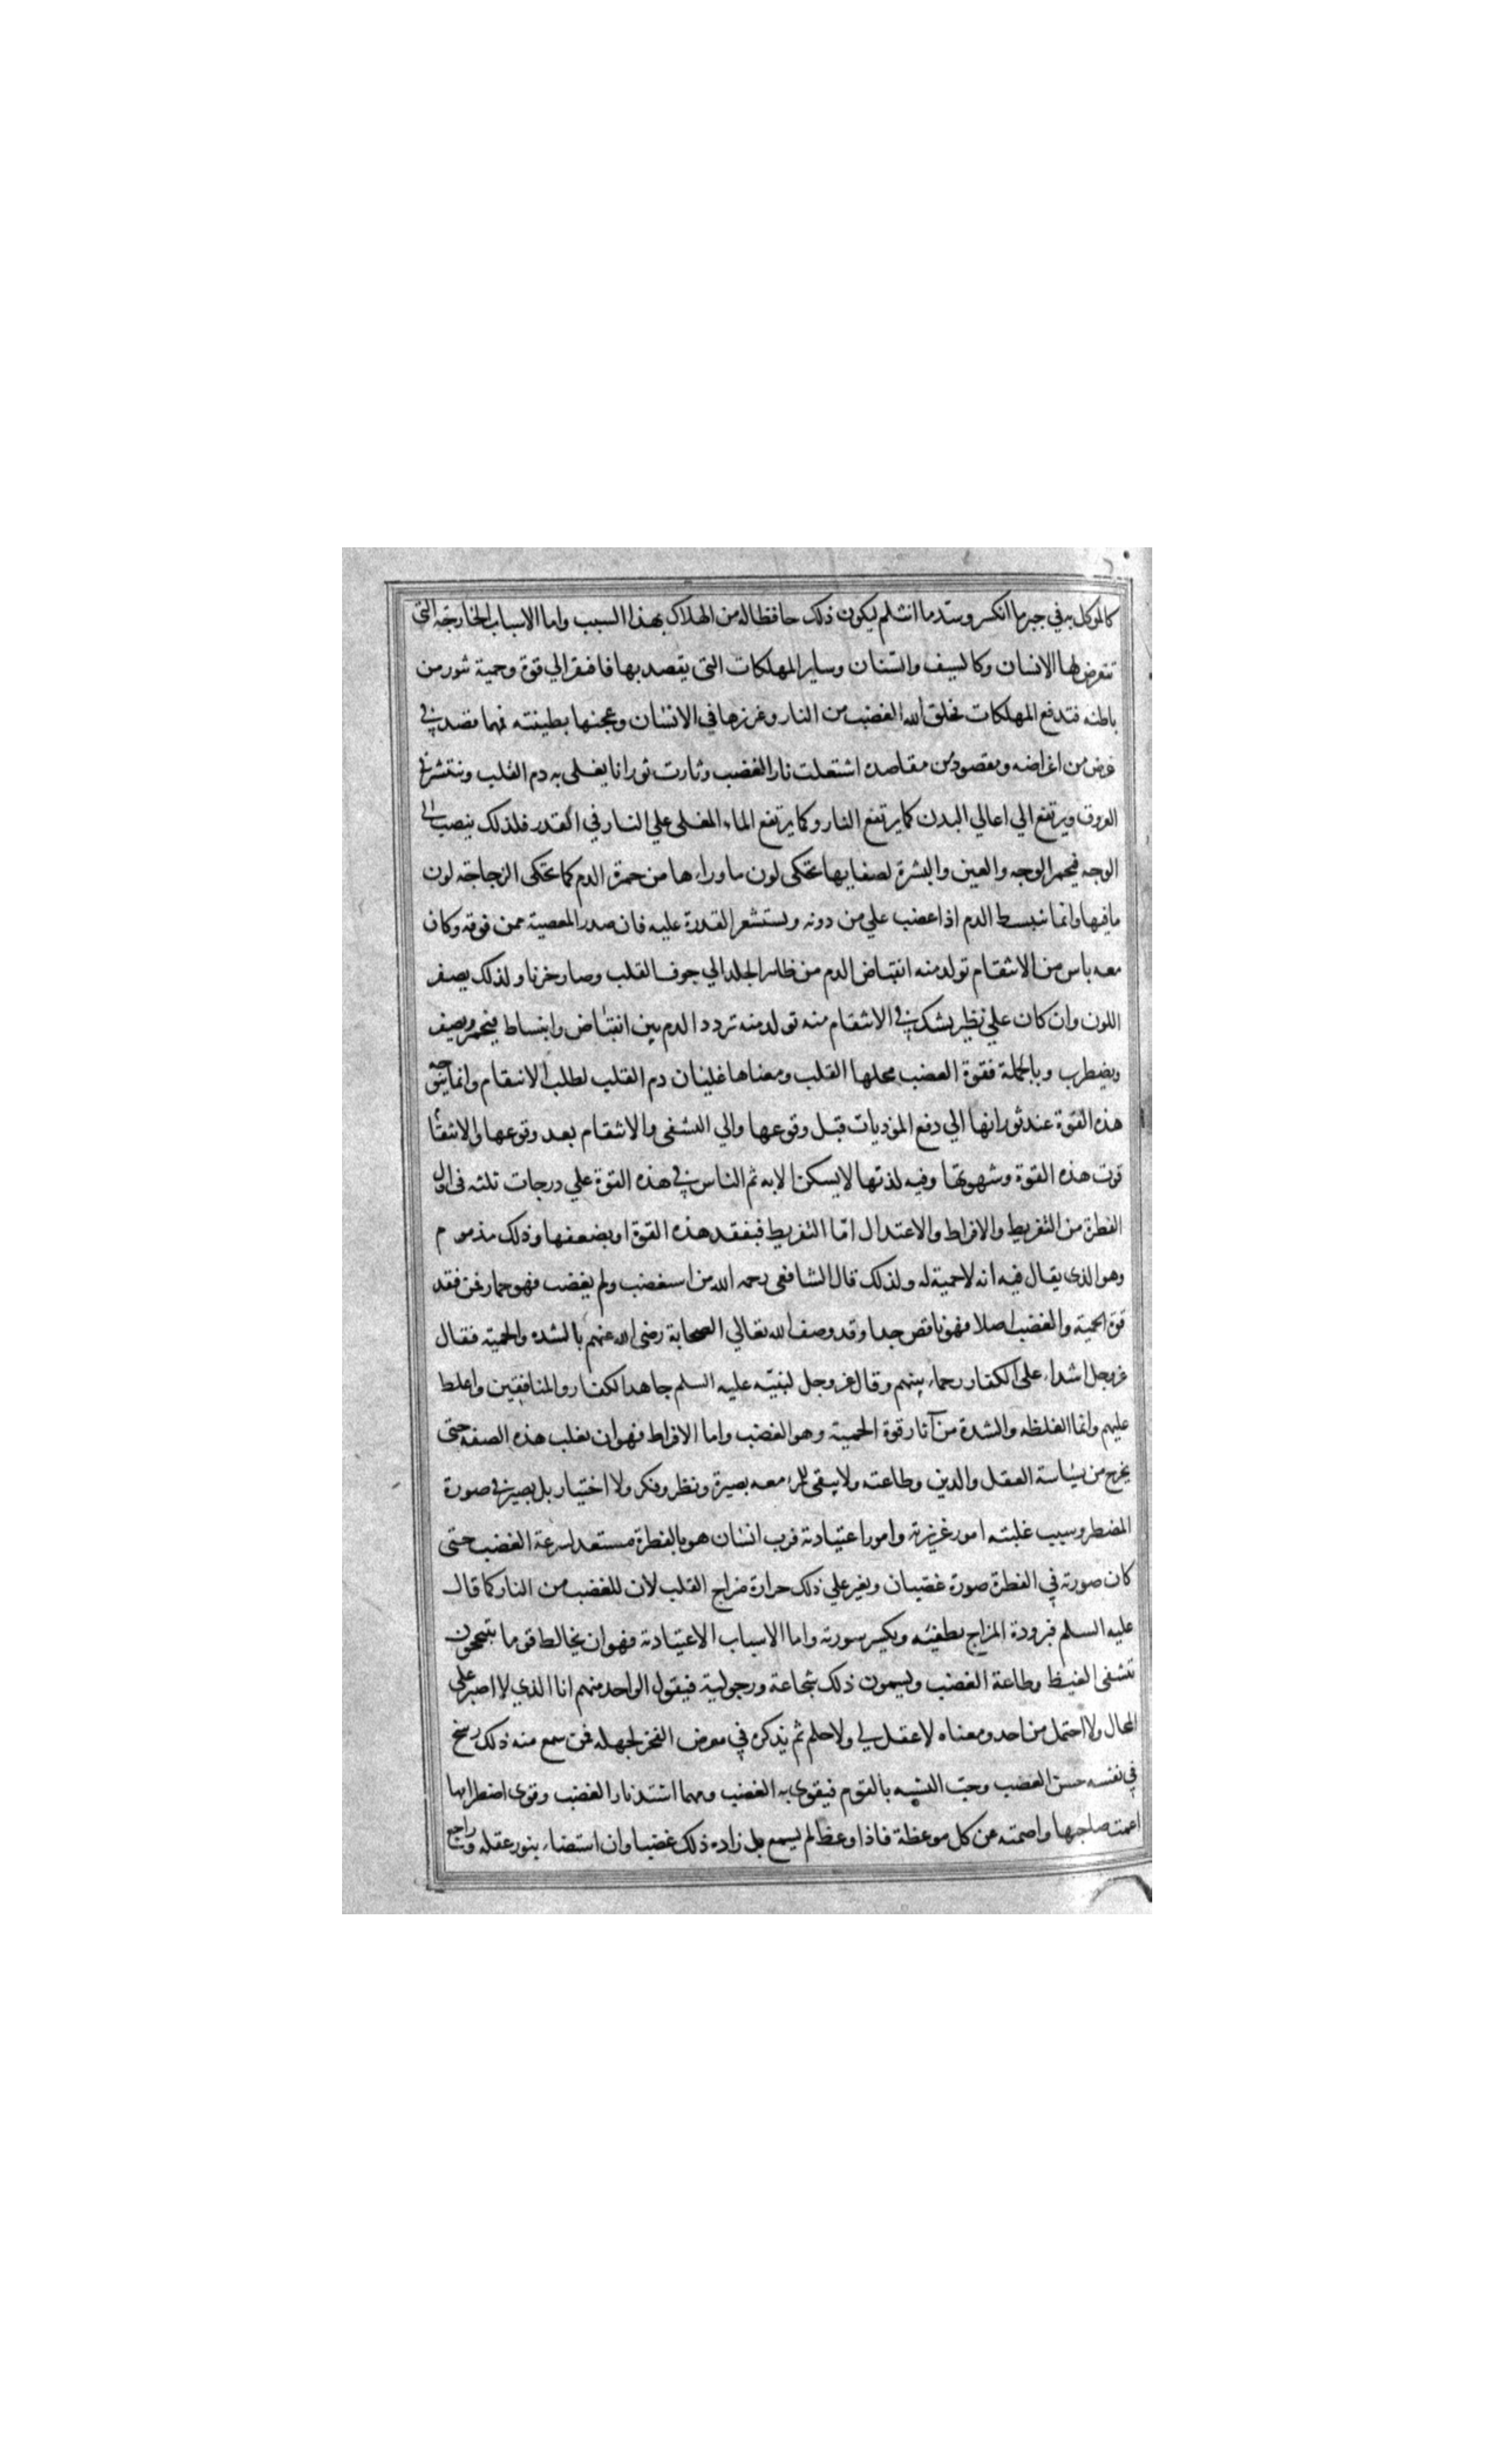 كالموكل به في جبر ما انكسر وسد ما انثلم ليكون ذلك حافظا له من الهلاك بهذا السبب واما الاسباب الخارجة التى
تتعرض لها الانسان وكالسيف والسنان وساير المهلكات التى يقصد بها فافتقر الي قوة وحمية تثور من
باطنه فتدفع المهلكات فخلق الله الغضب من النار وغرزها في الانسان وعجنها بطينته فهما قصد في
غرض من اغراضه ومقصود من مقاصده اشتعلت نار الغضب وثارت ثورانا يغلى به دم القلب وينتشر في
العروق ويرتفع الي اعالي البدن كما يرتفع النار وكما يرتفع الماء المغلى علي النار في القدر فلذلك ينصب الى
الوجه فيحمر الوجه والعين والبشرة لصفايها تحكى لون ما وراءها من حمرة الدم كما تحكى الزجاجة لون
ما فيها وانما ينبسط الدم اذا غضب علي من دونه ويستشعر القدرة عليه فان صدر المعصية ممن فوقه وكان
معه ياس من الانتقام تولد منه انقباض الدم من ظاهر الجلد الي جوف القلب وصار حزنا ولذلك يصفر
اللون وان كان علي نظير يشك في الانتقام منه تولد منه تردد الدم بين انقباض وانبساط فيحمر ويصفر
ويضطرب وبالجملة فقوة الغضب محلها القلب ومعناها غليان دم القلب لطلب الانتقام وانما يتوجه
هذه القوة عند ثورانها الي دفع الموذيات قبل وقوعها والي التشفى والانتقام بعد وقوعها والانتقام
قوت هذه القوة وشهوتها وفيه لذتها لا يسكن الا به ثم الناس في هذه القوة علي درجات ثلثه فى اول
الفطرة من التفريط والافراط والاعتدال امّا التفريط فبفقد هذه القوة او بضعفها وذلك مذموم
وهو الذى يقال فيه انه لا حمية له ولذلك قال الشافعى رحمه الله من استغضب ولم يغضب فهو حمار فمن فقد
قوة الحمية والغضب اصلا فهو ناقص جدا وقد وصف الله تعالي الصحابة رضى الله عنهم بالشده والحمية فقال
عز وجل اشداء على الكفار رحماء بينهم وقال عز وجل لنبيّه عليه السلم جاهد الكفار والمنافقين واغلظ
عليهم وانما الغلظه والشدة من آثار قوة الحمية وهو الغضب واما الافراط فهو ان يغلب هذه الصفه حتى
يخرج من سياسة العقل والدين وطاعته ولا يبقى للمرء معه بصيرة ونظر وفكر ولا اختيار بل يصير في صورة
المضطر وسبب غلبته امور غريزية وامور اعتيادية فرب انسان هو بالفطرة مستعد لسرعة الغضب حتى
كان صورته في الفطرة صورة غضبان ويعين علي ذلك حرارة مزاج القلب لان للغضب من النار كما قال
عليه السلم فبرودة المزاج يطفئه ويكسر سورته واما الاسباب الاعتيادية فهو ان يخالط قوما يتبجحون
بتشفى الغيظ وطاعة الغضب ويسمون ذلك شجاعة ورجولية فيقول الواحد منهم انا الذي لا اصبر على
المحال ولا احتمل من احد ومعناه لا عقل لي ولا حلم ثم يذكره في معرض الفخر لجهله فمن سمع منه ذلك رسخ
في نفسه حسن الغضب وحبّ التشبه بالقوم فيقوى به الغضب ومهما اشتد نار الغضب وقوى اضطرامها
اعمت صاحبها واصمته عن كل موعظة فاذا وعظ لم يسمع بل زاده ذلك غضبا وان استضاء بنور عقله وراجع